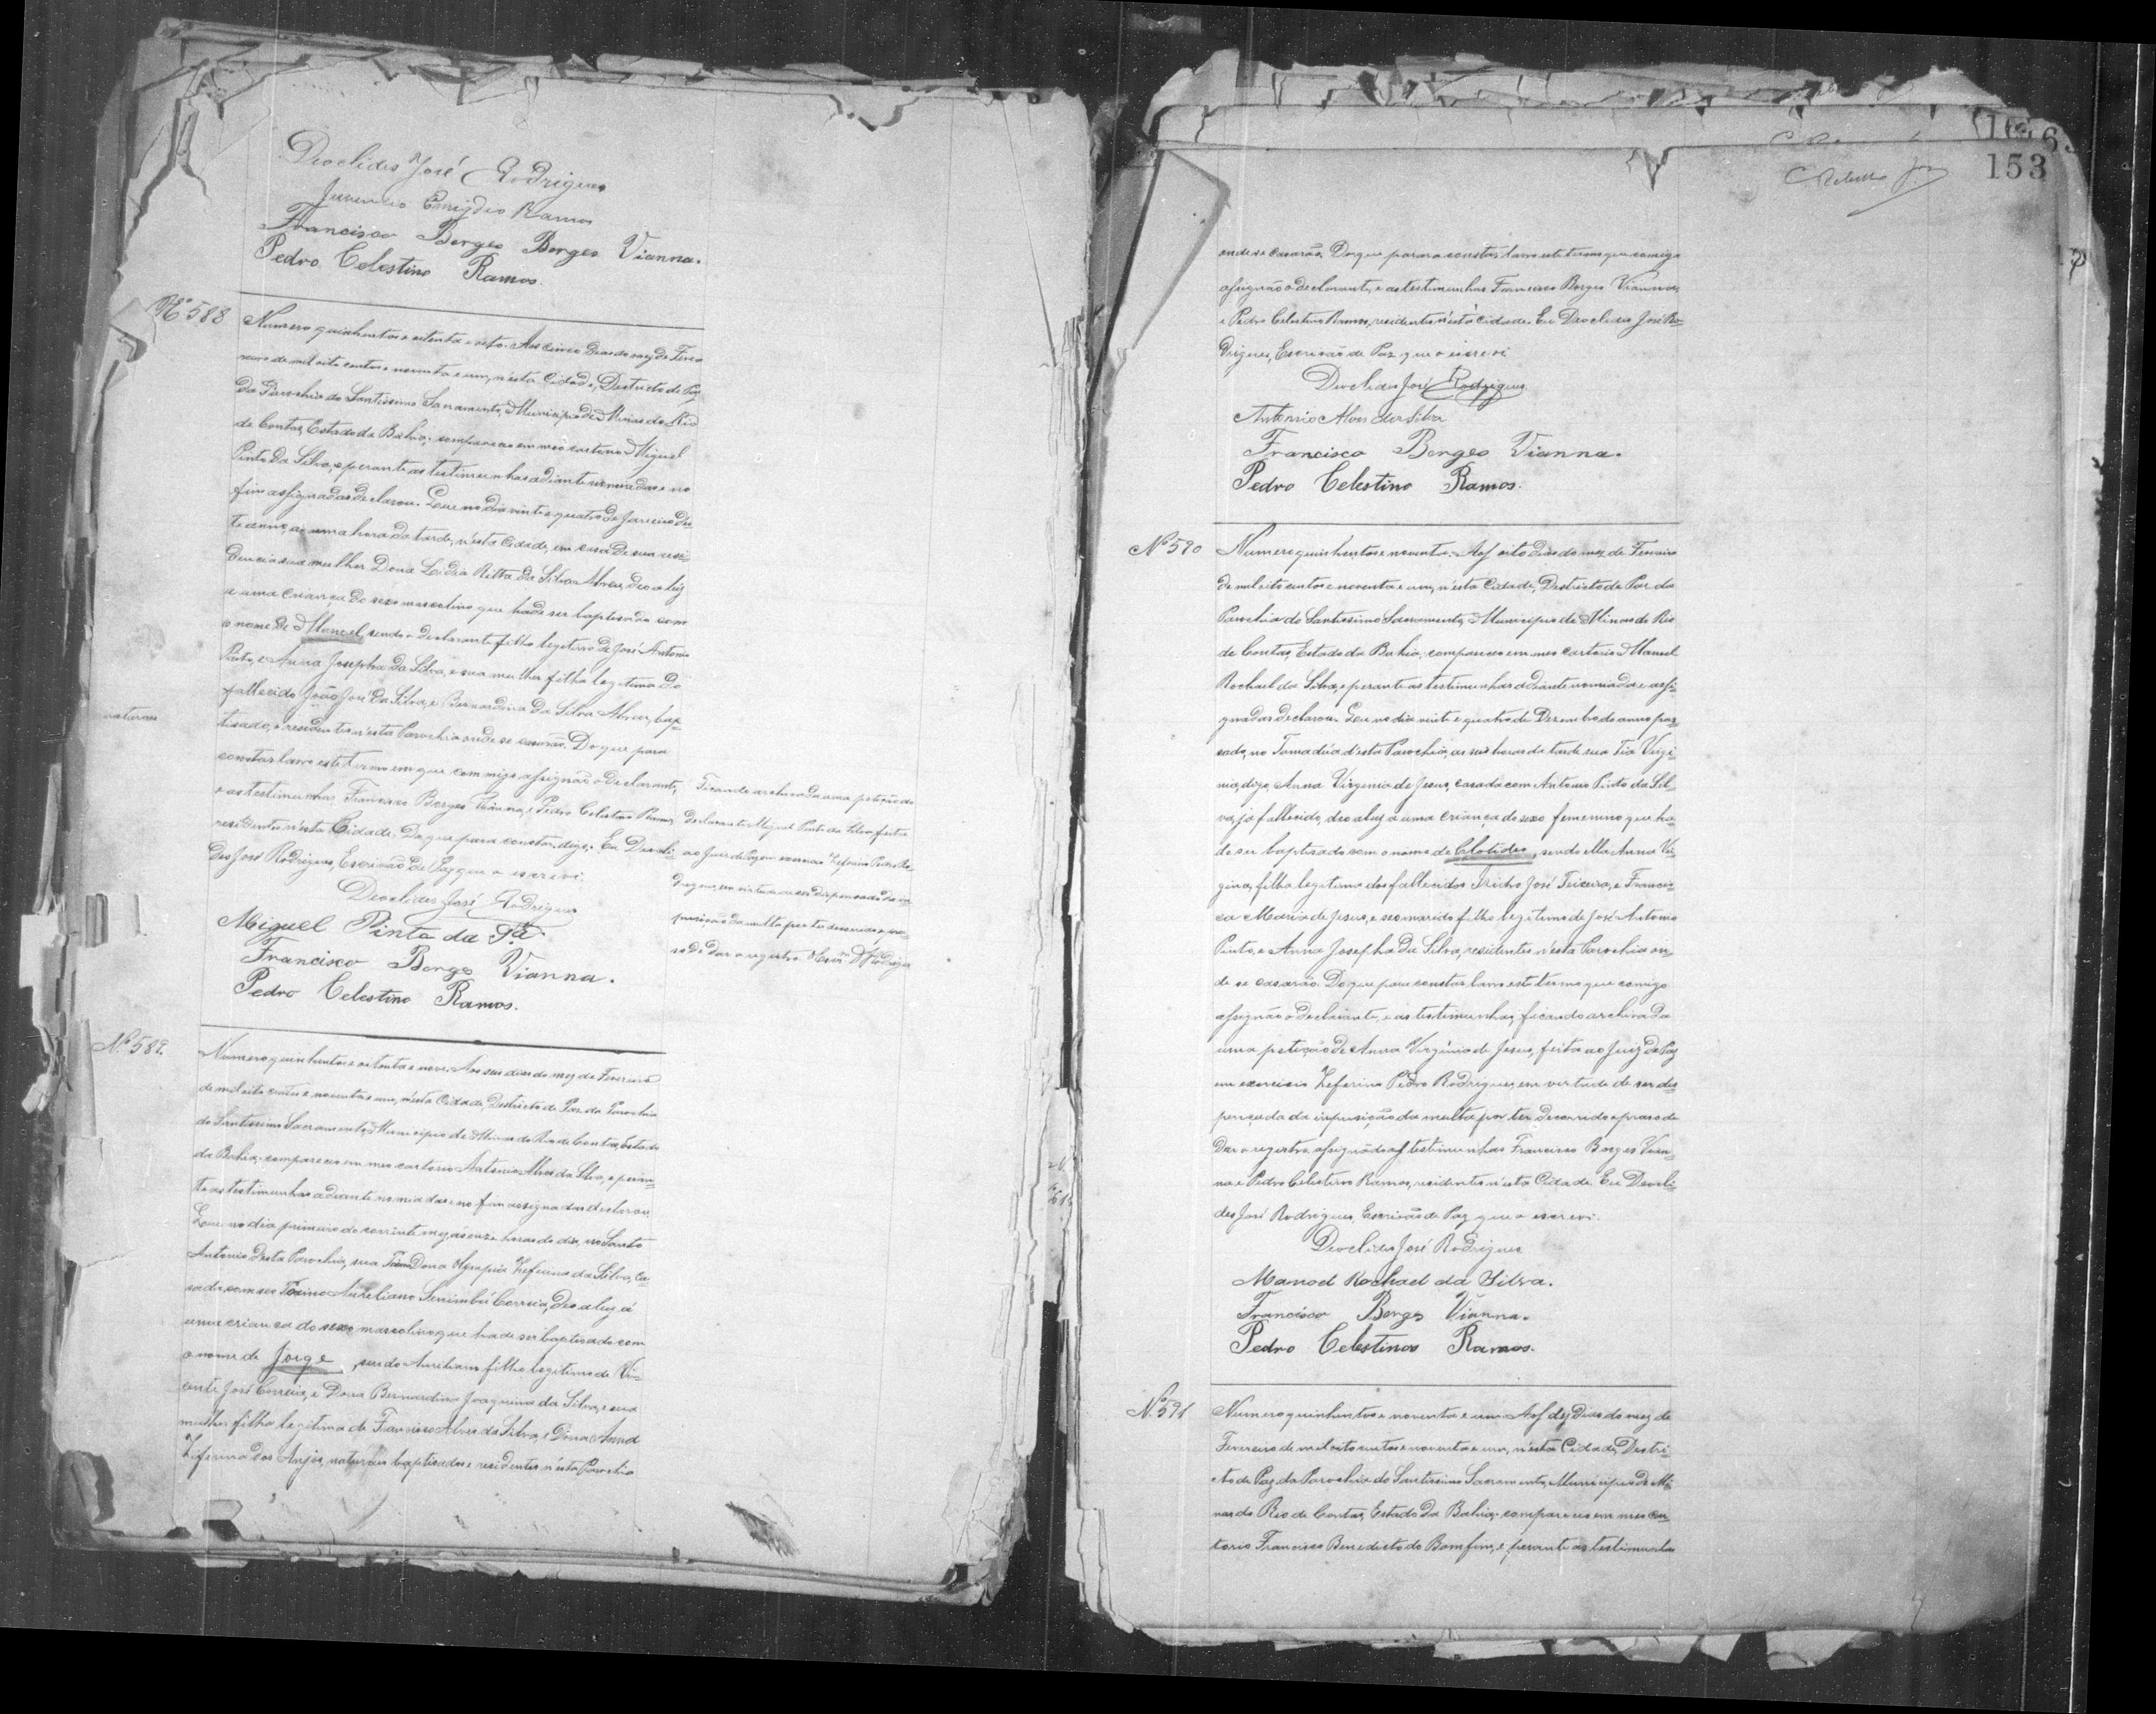 Deoclides José Rodrigues
Juvencio Emygdio Ramos
Francisco Borges Borges Vianna.
Pedro Celestino Ramos.
Nº 588
Numero quinhentos e oitenta e oito. Aos cinco dias do mez de Feve
reiro de mil oito centos e noventa e um, n'esta Cidade, Destricto de Paz
da Parochia do Santissimo Sacramento, Municipio de Minas do Rio
de Contas, Estado da Bahia; compareceo em meo cartorio Miguel
Pinto da Silva, e perante as testimunhas adiante nomeadas e no
fim assignadas declarou. Que no dia vinte e quatro de Janeiro des-
te anno, a uma hora da tarde, n'esta Cidade, em casa de sua resi-
dencia sua mulher Dona Lidia Ritta da Silva Abreu, deo a luz
a uma criança do sexo masculino que hade ser baptisado com
o nome de Manoel, sendo o declarante filho legitimo de José Antonio
Pinto, e Anna Josepha da Silva, e sua mulher filha legitima do
fallecido João José da Silva, e Bernardina da Silva Abreu, bap-
tisados, e residentes n'esta Parochia onde se casarão. Do que para
constar lavro este termo em que commigo assignão o declarante,
e as testimunhas, Francisco Borges Vianna, e Pedro Celestino Ramos,
residentes n'esta Cidade. Do que para constar, digo: Eu Deocli-
des José Rodrigues, Escrivão de Paz que o escrevi.
Deoclides José Rodrigues
Miguel Pinto da Sª
Francisco Borges Vianna.
Pedro Celestino Ramos.
naturaes
Ficando archivada uma petição do
declarante Miguel Pinto da Silva feita
ao Juiz de Paz em exercicio Zeferino Pedro Ro-
drigues, em virtude de ser dispensado da im-
posição da multa por ter decorrido o pra-
so de dar o registro.
Nº 589.
Numero quinhentos e oitenta e nove. Aos seis dias do mez de Fevereiro
de mil oito centos e noventa e um, n'esta Cidade, Destricto de Paz da Parochia
do Santissimo Sacramento, Municipio de Minas do Rio de Contas, Estado
da Bahia; compareceo em meo cartorio Antonio Alves da Silva, e peran-
te as testimunhas adiante nomeadas e no fim assignadas declarou.
Que no dia primeiro do corrente mez, ás onze horas do dia, no Santo
Antonio desta Parochia, sua Dona Olympia Zeferina da Silva, ca-
sada com seo Aureliano Sinimbú Correia, deo a luz á
uma criança do sexo masculino que hade ser baptisado com
o nome de Jorge, sendo Aureliano filho legitimo de Vi-
cente José Correia, e Dona Bernardina Joaquina da Silva, e sua
mulher filha legitima de Francisco Alves da Silva, e Dona Anna
Zeferina dos Anjos, naturaes baptisados e residentes n'esta Parochia
153
onde se casarão. Do que para constar, lavro este termo que comigo
assignão o declarante, e as testimunhas Francisco Borges Vianna,
e Pedro Celestino Ramos, residentes n'esta Cidade. Eu Deoclides José Ro-
drigues, Escrivão de Paz que o escrevi
Deoclides José Rodrigues
Antonio Alves da Silva
Francisco Borges Vianna.
Pedro Celestino Ramos.
Nº 590
Numero quinhentos e noventa. Aos oito dias do mez de Fevereiro
de mil oito centos e noventa e um, n'esta Cidade, Destricto de Paz da
Parochia do Santissimo Sacramento, Municipio de Minas do Rio
de Contas, Estado da Bahia; compareceo em meo cartorio Manoel
Rochael da Silva, e perante as testimunhas adiante nomiadas e assi-
gnadas declarou. Que no dia vinte e quatro de Dezembro do anno pas-
sado, no Tomadia d'esta Parochia, as seis horas da tarde sua Tia Virgi-
nia, digo, Anna Virginia de Jesus, casada com Antonio Pinto da Sil-
va, já fallecido, deo a luz a uma criança do sexo femenino que ha-
de ser baptisado com o nome de Clotides, sendo ella Anna Vir-
gina, filha legitima dos fallecidos José Teixeira, e Francis-
ca Maria de Jesus, e seo marido filho legitimo de José Antonio
Pinto, e Anna Josepha da Silva, residentes n'esta Parochia on-
de se casarão. Do que para constar lavro este termo que comigo
assignão o declarante, e as testimunhas, ficando archivada
uma petição de Anna Virginia de Jesus, feita ao Juiz de Paz
em exercicio Zeferino Pedro Rodrigues, em virtude de ser dis-
pençada da imposição da multa por ter decorrido o praso de
dar o registro. assignão as testimunhas Francisco Borges Vian-
na e Pedro Celestino Ramos, residentes n'esta Cidade. Eu Deocli-
des José Rodrigues, Escrivão de Paz que o escrevi.
Deoclides José Rodrigues
Manoel Rochael da Silva.
Francisco Borges Vianna.
Pedro Celestino Ramos.
Nº 591
Numero quinhentos e noventa e um. Aos dez dias do mez de
Fevereiro de mil oito centos e noventa e um, n'esta Cidade, Destri-
cto de Paz da Parochia do Santissimo Sacramento, Municipio de Mi-
nas do Rio de Contas, Estado da Bahia; compareceo em meo car-
torio Francisco Benedicto do Bomfim, e perante as testimunhas